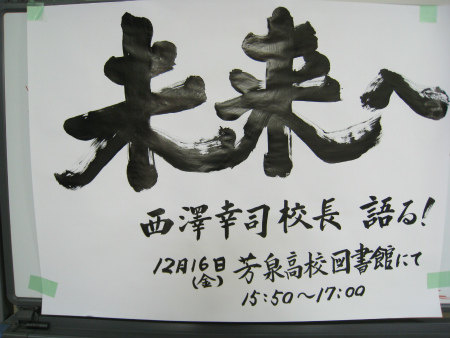 未来へ
西澤幸司校長 語る!
12月16日 芳泉高校図書館にて
(金)
15:50〜17:00